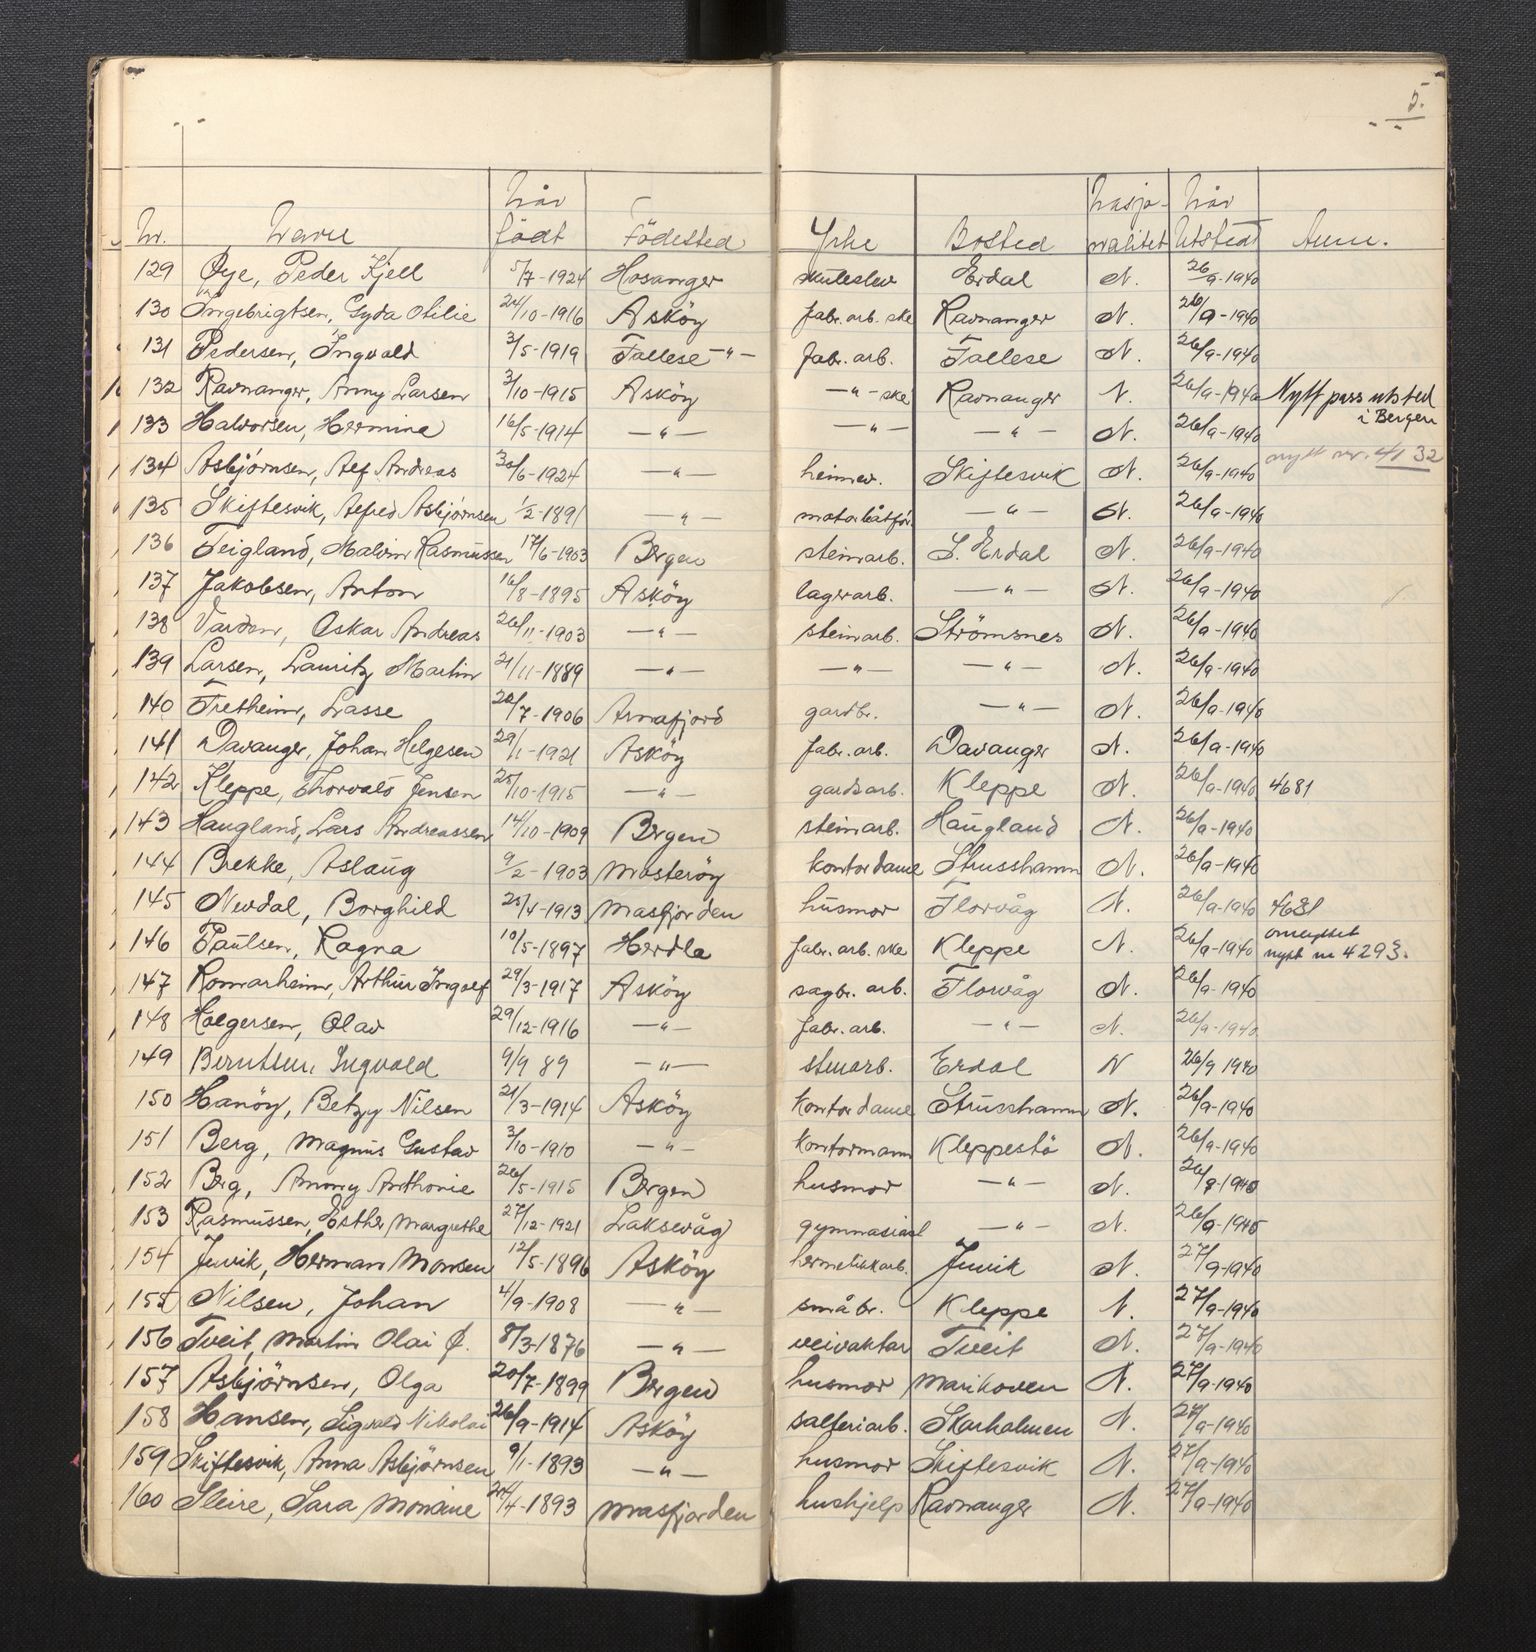 5.
Nr. Navn Når født Födested Yrke Bosted Nasjonalitet Når Utsted Anm.
129 Øye, Peder Kjell 5/7-1924 Hosanger skuleelev Erdal N. 26/9-1940
130 Ingebrigtsen, Gyda Otilie 24/10-1916 Asköy fabr. arb. ske Ravnanger N. 26/9-1940
131 Pedersen, Ingvald 3/5-1919 Follese -"- fabr. arb. Follese N. 26/9-1940
132 Ravnanger, Anny Larsen 3/10-1915 Asköy -"- ske Ravnanger N. 26/9-1940 Nytt pass utsted i Bergen
133 Halvorsen, Hermine 16/5-1914 -"- -"- -"- N. 26/9-1940
134 Asbjörnsen, Alf Andreas 30/6-1924 -"- heimev. Skiftesvik N. 26/9-1940 nytt nr. 4132
135 Skiftesvik, Alfred Asbjörnsen 1/2-1891 -"- motorbåtför. -"- N. 26/9-1940
136 Teigland, Malvin Rasmussen 17/6-1903 Bergen steinarb. S. Erdal N. 26/9-1940
137 Jakobsen, Anton 16/8-1895 Asköy lagerarb. -"- N. 26/9-1940
138 Varden, Oskar Andreas 26/11-1903 -"- steinarb. Strömsnes N. 26/9-1940
139 Larsen, Lauritz Martin 21/11-1889 -"- -"- -"- N. 26/9-1940
140 Tretheim, Lasse 26/7-1906 Arnafjord gardbr. -"- N. 26/9-1940
141 Davanger, Johan Helgesen 29/1-1921 Asköy fabr. arb. Davanger N. 26/9-1940
142 Kleppe, Thorvald Jensen 25/10-1915 -"- gardsarb. Kleppe N. 26/9-1940 4681
143 Haugland, Lars Andreassen 14/10-1909 Bergen steinarb. Haugland N. 26/9-1940
144 Brekke, Aslaug 9/2-1903 Mosteröy kontordame Strusshamn N. 26/9-1940
145 Nevdal, Borghild 25/4-1913 Masfjorden husmor Florvåg N. 26/9-1940 4631
146 Paulsen, Ragna 10/5-1897 Herdla fabr. arb. ske Kleppe N. 26/9-1940 ombyttet nytt nr 4293.
147 Romarheim, Arthur Ingolf 29/3-1917 Asköy sagbr. arb. Florvåg N. 26/9-1940
148 Holgersen, Olav 29/12-1916 -"- fabr. arb. -"- N. 26/9-1940
149 Berntsen, Ingvald 9/9 89 -"- stenarb. Erdal N 26/9 1940
150 Hanöy, Betzy Nilsen 21/3-1914 Asköy kontordame Strusshamn N. 26/9-1940
151 Berg, Magnus Gustav 3/10-1910 -"- kontormann Kleppestö N. 26/9-1940
152 Berg, Annny Anthonie 26/5-1915 Bergen husmor -"- N. 26/9-1940
153 Rasmussen, Esther Margrethe 27/12-1921 Laksevåg gymnasiast -"- N. 26/9-1940
154 Juvik, Herman Monsen 12/5-1896 Asköy hermetikkarb. Juvik N. 27/9-1940
155 Nilsen, Johan 4/9-1908 -"- småbr. Kleppe N. 27/9-1940
156 Tveit, Martin Olai Ø. 8/3-1876 -"- veivaktar Tveit N. 27/9-1940
157 Asbjörnsen, Olga 20/7-1899 Bergen husmor Marikoven N. 27/9-1940
158 Hansen, Sigvald Nikolai 26/9-1914 Asköy salteriarb. Skarholmen N. 27/9-1940
159 Skiftesvik, Anna Asbjörnsen 9/1-1893 -"- husmor Skiftesvik N. 27/9-1940
160 Sleire, Sara Monsine 24/4-1893 Masfjorden hushjelp Ravnanger N. 27/9-1940